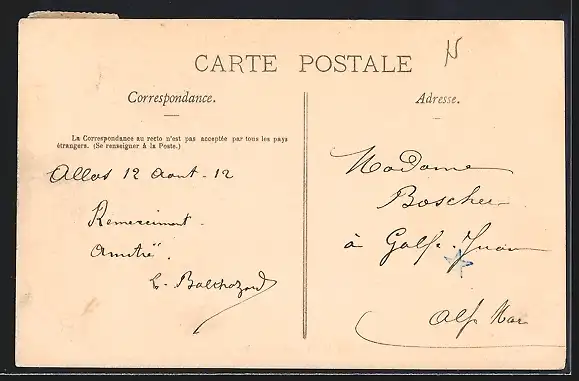 CARTE POSTALE
Correspondance.
La Correspondance au recto n'est pas acceptée par tous les pays
étrangers. (Se renseigner à la Poste.)
Allos 12 Aout - 12
Remerciment.
Amitié.
Balthazard
Adresse.
Madame
Boscher
à Golfe-Juan
Alp Mar